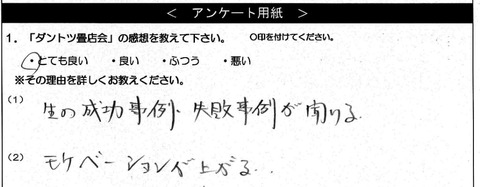 ＜ アンケート用紙 ＞
1．「ダントツ畳店会」の感想を教えて下さい。 ○印を付けてください。
・とても良い ・良い ・ふつう ・悪い
※その理由を詳しくお教えください。
(1) 生の成功事例、失敗事例が聞ける。
(2) モチベーションが上がる。